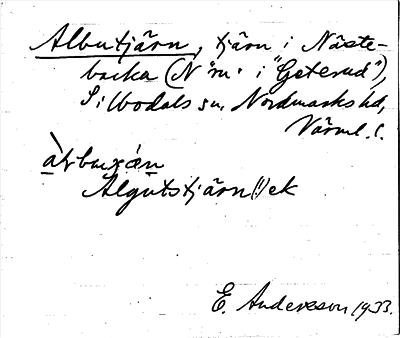 Albutjärn, tjärn i Näste-
backa (N "m" i "Geterud"),
Silbodals sn. Nordmarks hd,
Värml. l.
Älgutstjärn(!) ek
E. Andersson 1933.